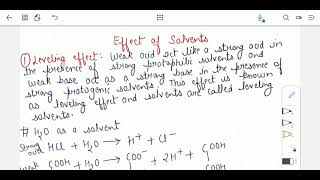 Effect of Solvents
① Leveling effect: Weak acid act like a strong acid in
the presence of strong protophilic solvents and
weak base act as a strong base in the presence of
strong protogenic solvents. This effect is known
as leveling effect and solvents are called leveling
solvents.
# H2O as a solvent
Strong acid HCl + H2O → H+ + Cl-
Weak COOH + H2O → COO- + 2H+ + COOH
COOH